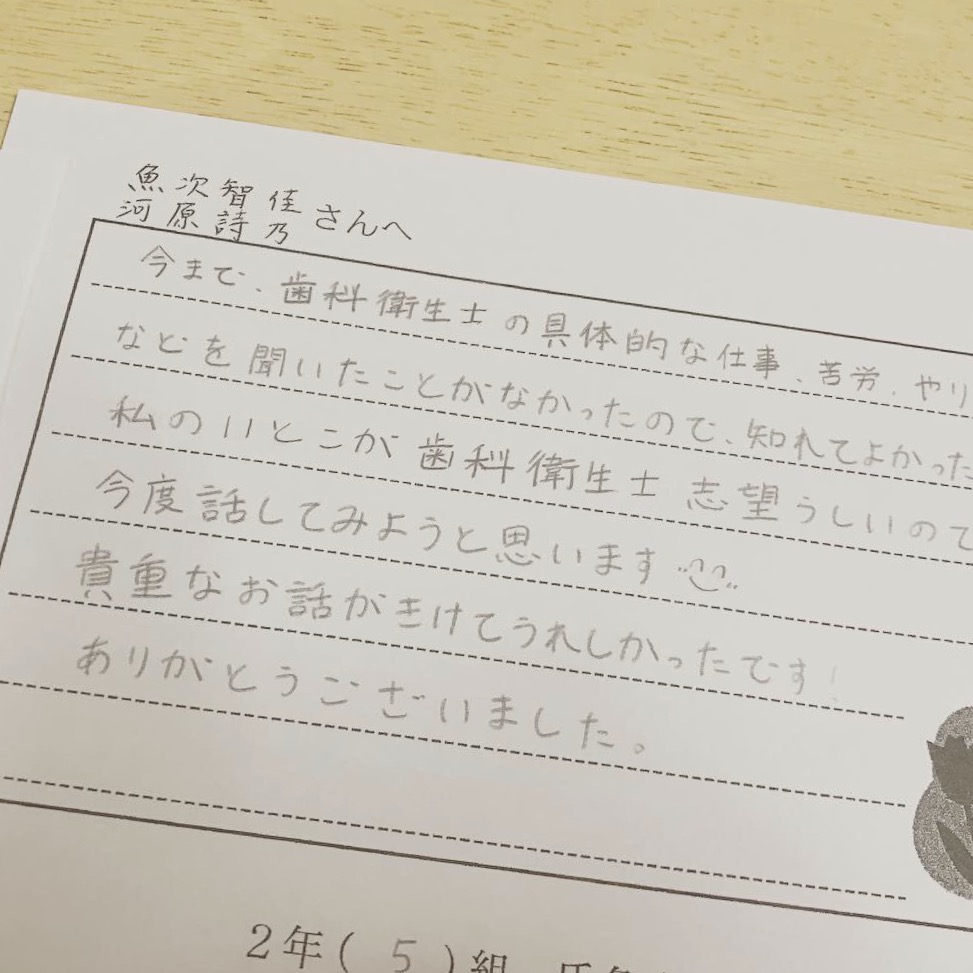 魚次智佳
河原詩乃 さんへ
今まで、歯科衛生士の具体的な仕事、苦労、やり
などを聞いたことがなかったので、知れてよかった
私のいとこが歯科衛生士志望らしいので
今度話してみようと思います
貴重なお話がきけてうれしかったです!
ありがとうございました。
2年(5)組